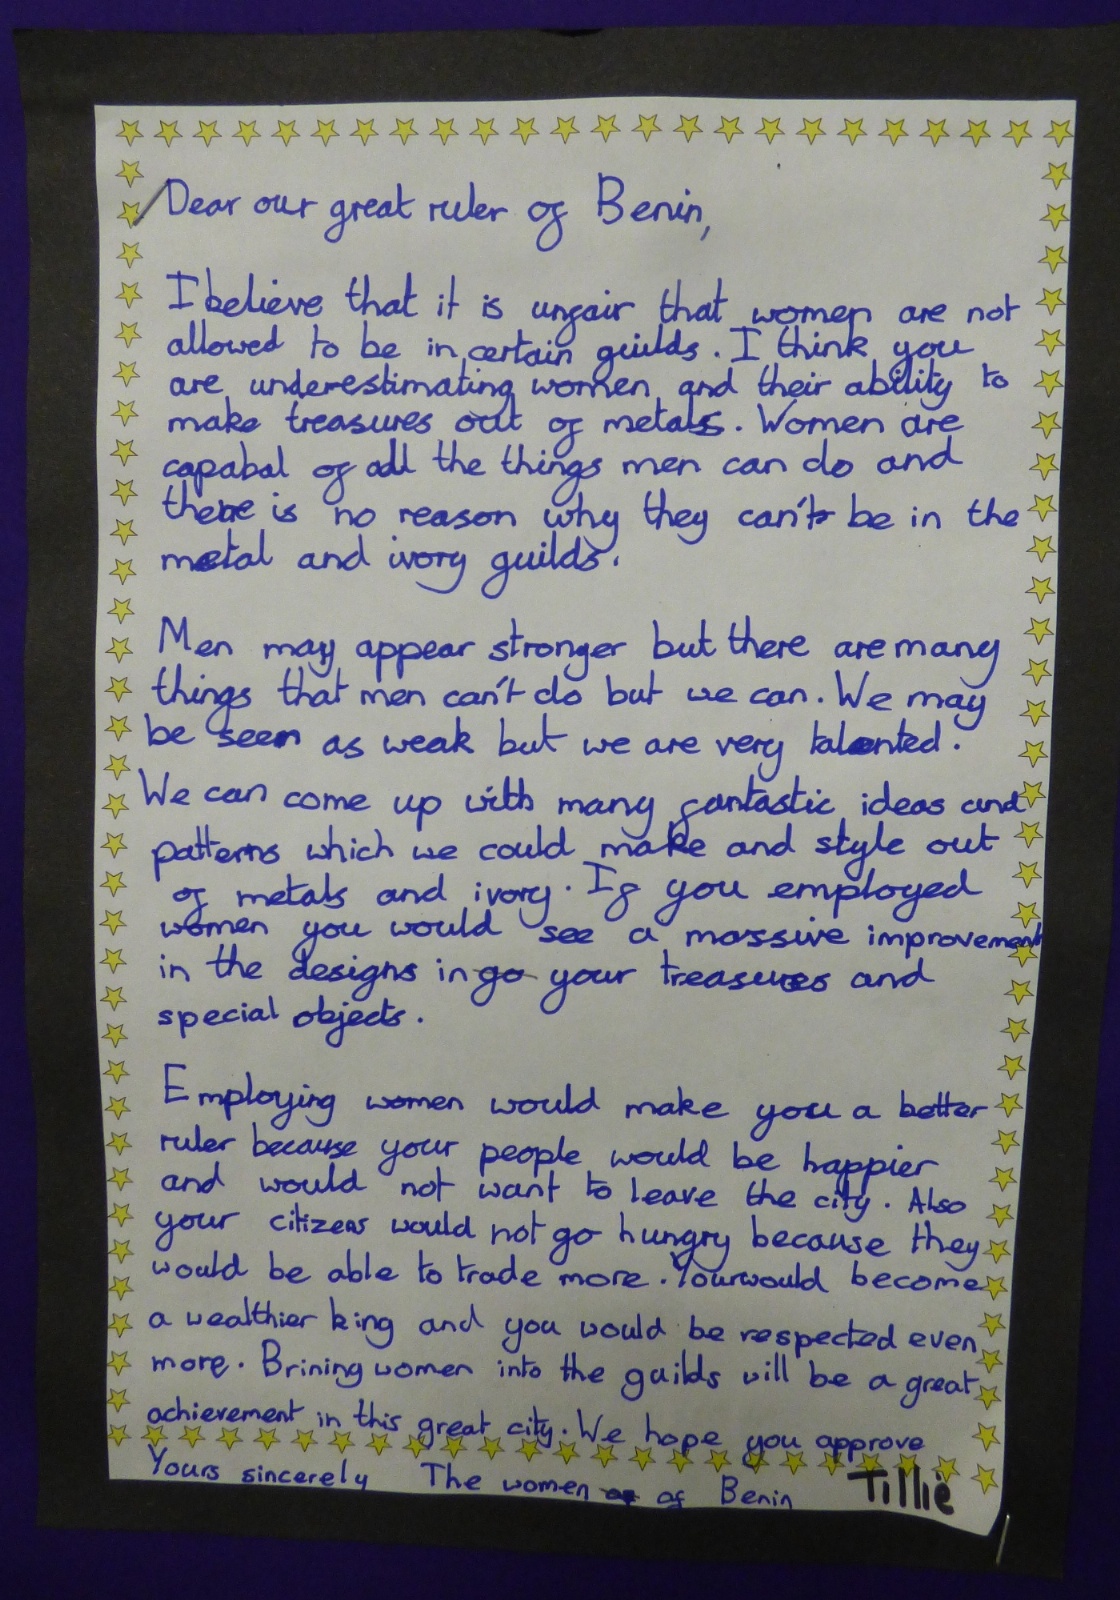 Dear our great ruler of Benin,
I believe that it is unfair that women are not
allowed to be in certain guilds. I think you
are underestimating women and their ability to
make treasures out of metals. Women are
capabal of all the things men can do and
there is no reason why they can't be in the
metal and ivory guilds.
Men may appear stronger but there are many
things that men can't do but we can. We may
be seen as weak but we are very talented.
We can come up with many fantastic ideas and
patterns which we could make and style out
of metals and ivory. If you employed
women you would see a massive improvement
in the designs in go your treasures and
special objects.
Employing women would make you a better
ruler because your people would be happier
and would not want to leave the city. Also
your citizens would not go hungry because they
would be able to trade more. Your would become
a wealthier king and you would be respected even
more. Brining women into the guilds will be a great
achievement in this great city. We hope you approve
Yours sincerely The women of Benin Tillie